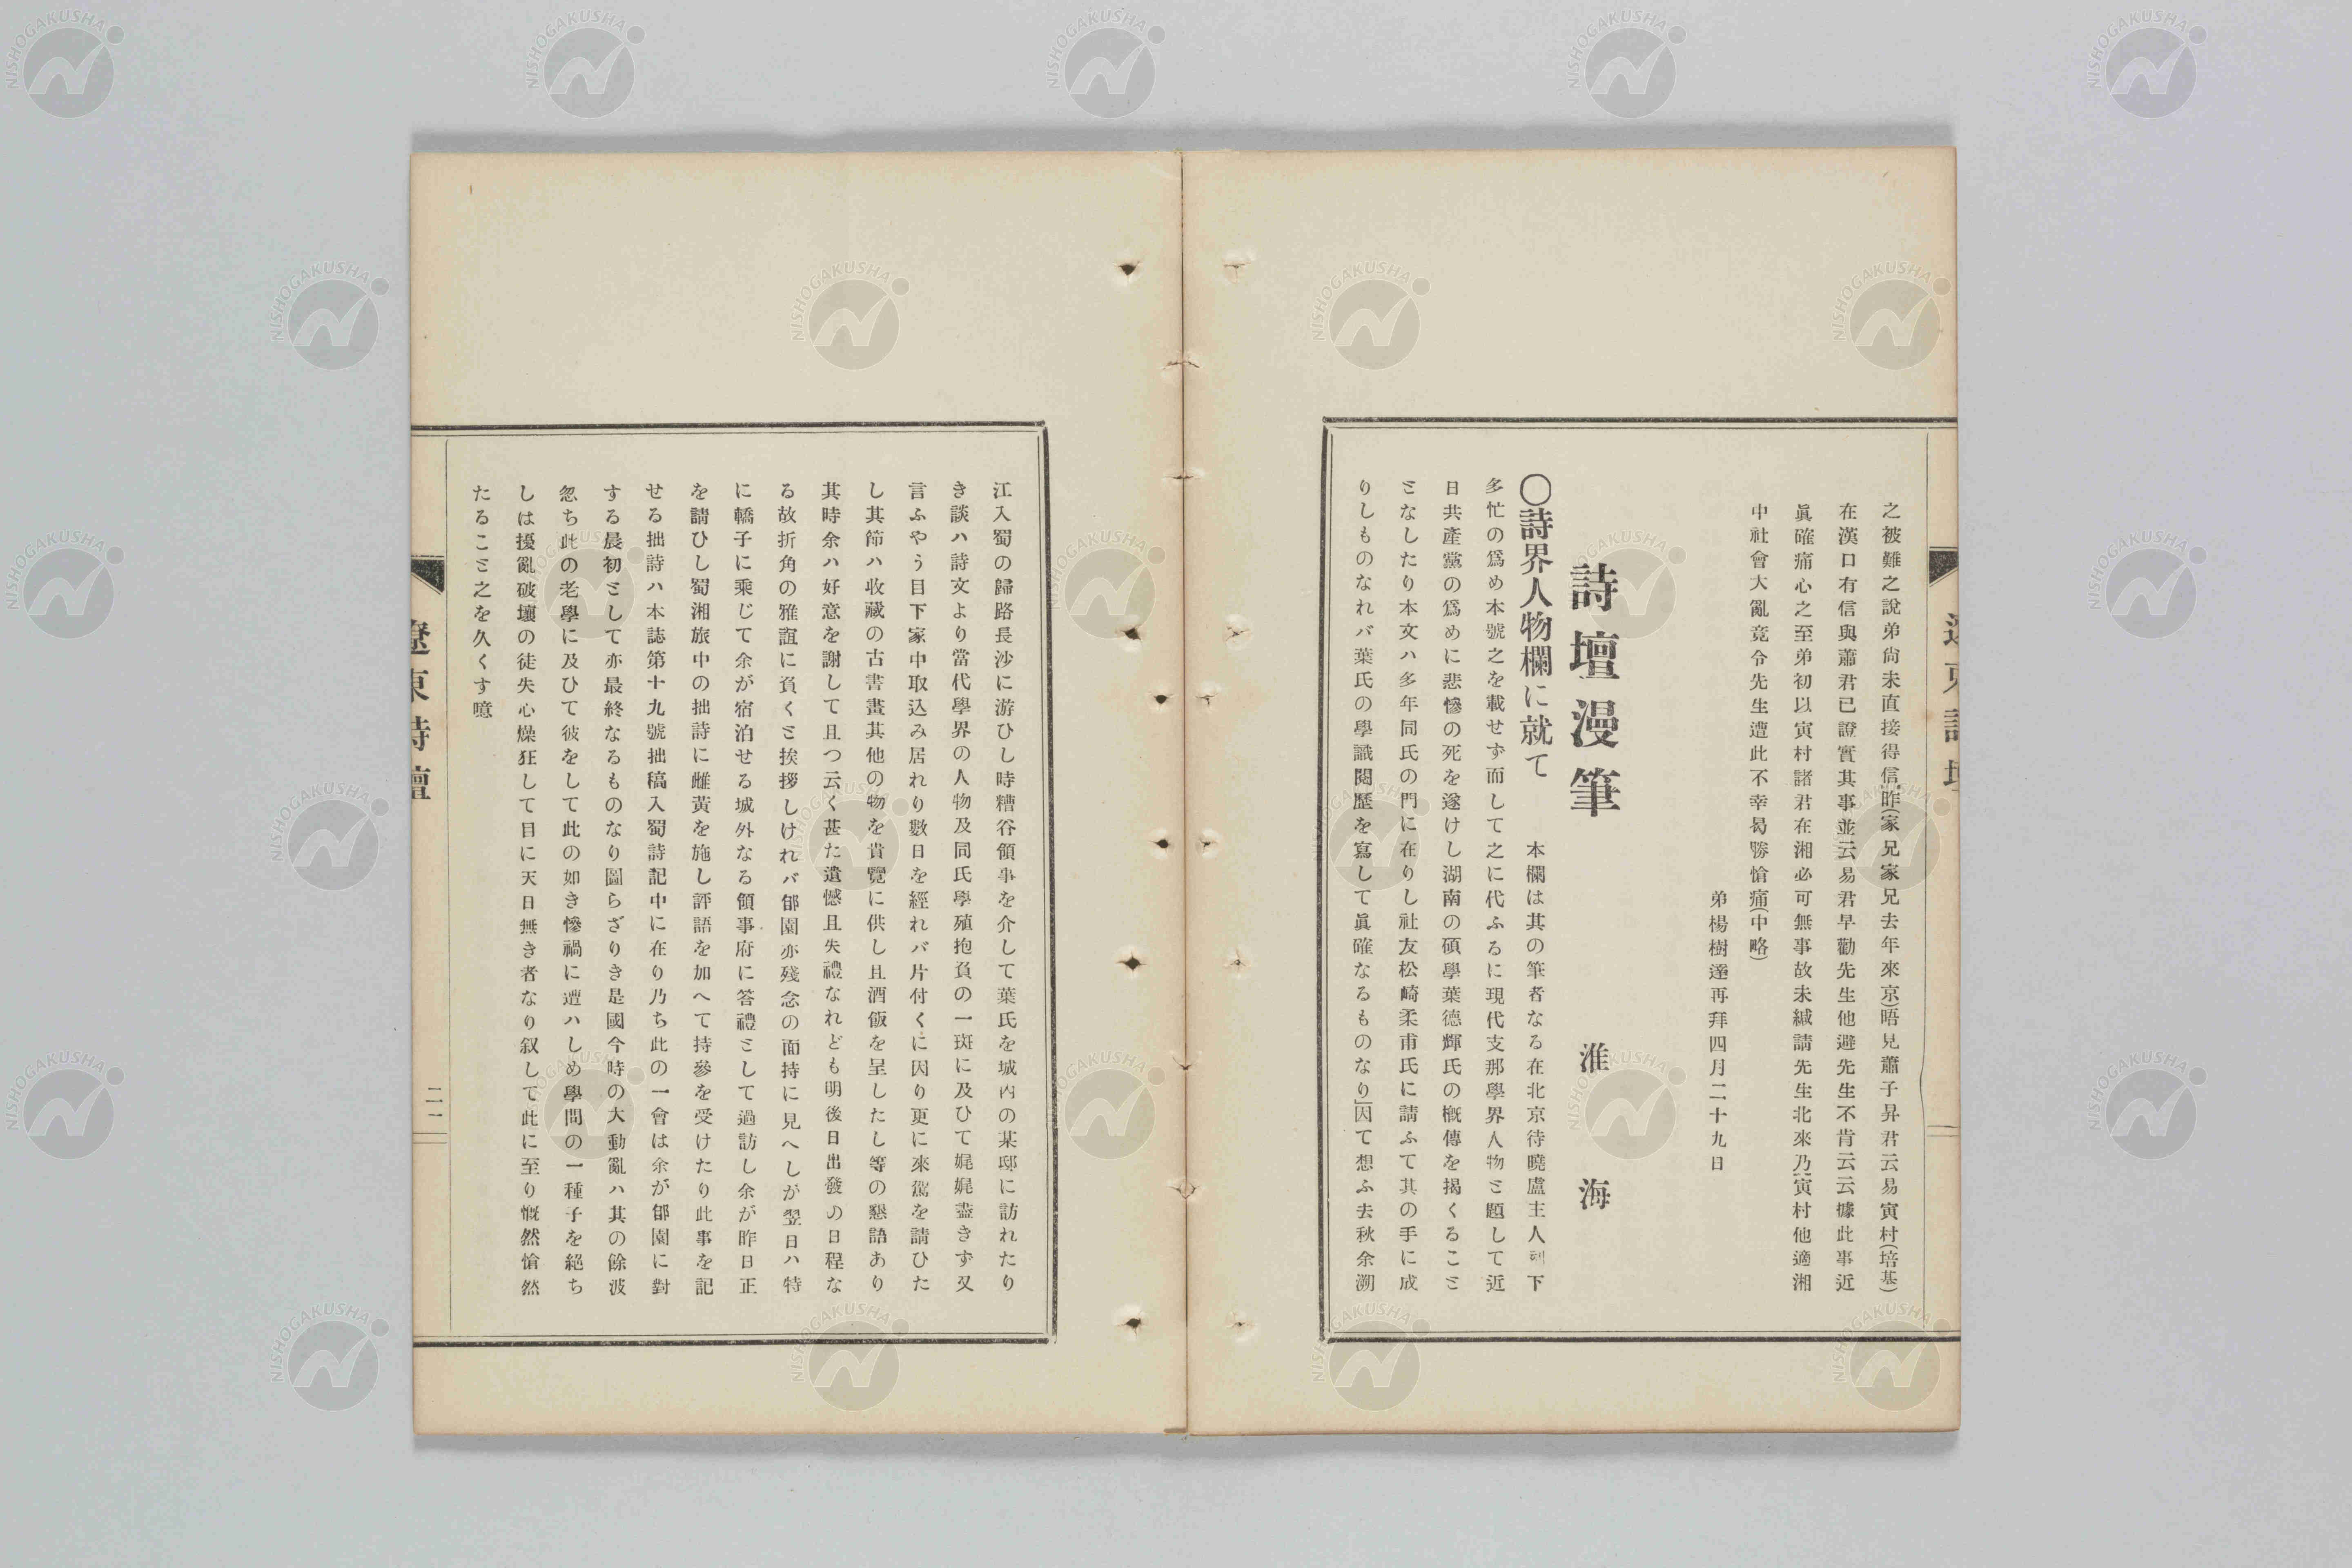 之被難之說弟尙未直接得信昨(家兄家兄去年來京)晤見蕭子昇君云易寅村(培基)
在漢口有信與蕭君已證實其事並云易君早勸先生他避先生不肯云云據此事近
眞確痛心之至弟初以寅村諸君在湘必可無事故未緘請先生北來乃寅村他適湘
中社會大亂竟令先生遭此不幸曷勝愴痛(中略)
弟楊樹達再拜四月二十九日
詩壇漫筆
淮海
〇詩界人物欄に就て 本欄は其の筆者なる在北京待曉盧主人 下
多忙の爲め本號之を載せず而して之に代ふるに現代支那學界人物ミ題して近
日共產黨の爲めに悲慘の死を遂けし湖南の碩學葉德輝氏の槪傳を揭くるこミ
ミなしたり本文ハ多年同氏の門に在りし社友松崎柔甫氏に請ふて其の手に成
りしものなれバ葉氏の學識閱歷を寫して眞確なるものなり」因て想ふ去秋余溯
江入蜀の歸路長沙に游ひし時糟谷領事を介して葉氏を城內の某邸に訪れたり
き談ハ詩文より當代學界の人物及同氏學殖抱負の一斑に及ひて娓娓盡きず又
言ふやう目下家中取込み居れり數日を經れバ片付くに因り更に來駕を請ひた
し其節ハ收藏の古書畫其他の物を貴覽に供し且酒飯を呈したし等の懇語あり
其時余ハ好意を謝して且つ云く甚た遺憾且失禮なれども明後日出發の日程な
る故折角の雅誼に負くミ挨拶しけれバ郋園亦殘念の面持に見へしが翌日ハ特
に轎子に乘じて余が宿泊せる城外なる領事府に答禮ミして過訪し余が昨日正
を請ひし蜀湘旅中の拙詩に雌黃を施し評語を加へて持參を受けたり此事を記
せる拙詩ハ本誌第十九號拙稿入蜀詩記中に在り乃ち此の一會は余が郋園に對
する晨初ミして亦最終なるものなり圖らざりき是國今時の大動亂ハ其の餘波
忽ち此の老學に及ひて彼をして此の如き慘禍に遭ハしめ學問の一種子を絕ち
しは擾亂破壞の徒失心燥狂して目に天日無き者なり叙して此に至り慨然愴然
たるこミ之を久くす噫
遼東詩壇
二二